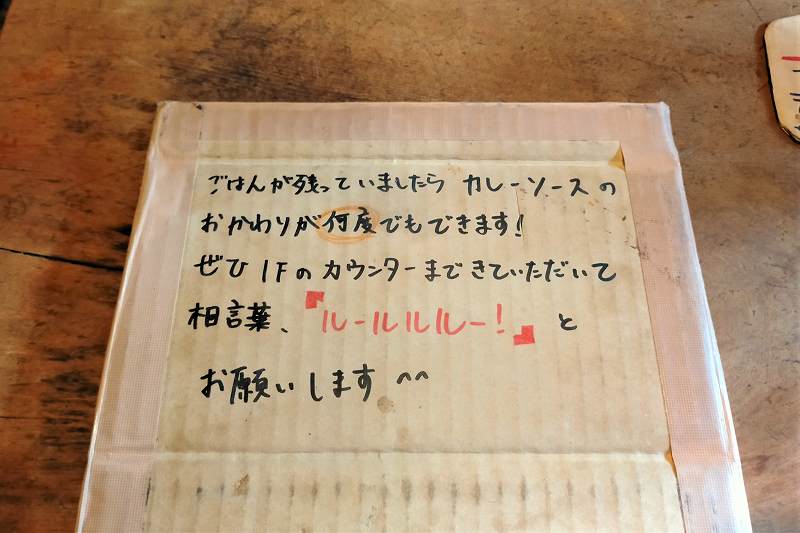 ごはんが残っていましたら カレーソースの
おかわりが何度でもできます!
ぜひ 1Fの カウンターまできていただいて
相言葉、『ルールルルルー!』と
お願いします ^^